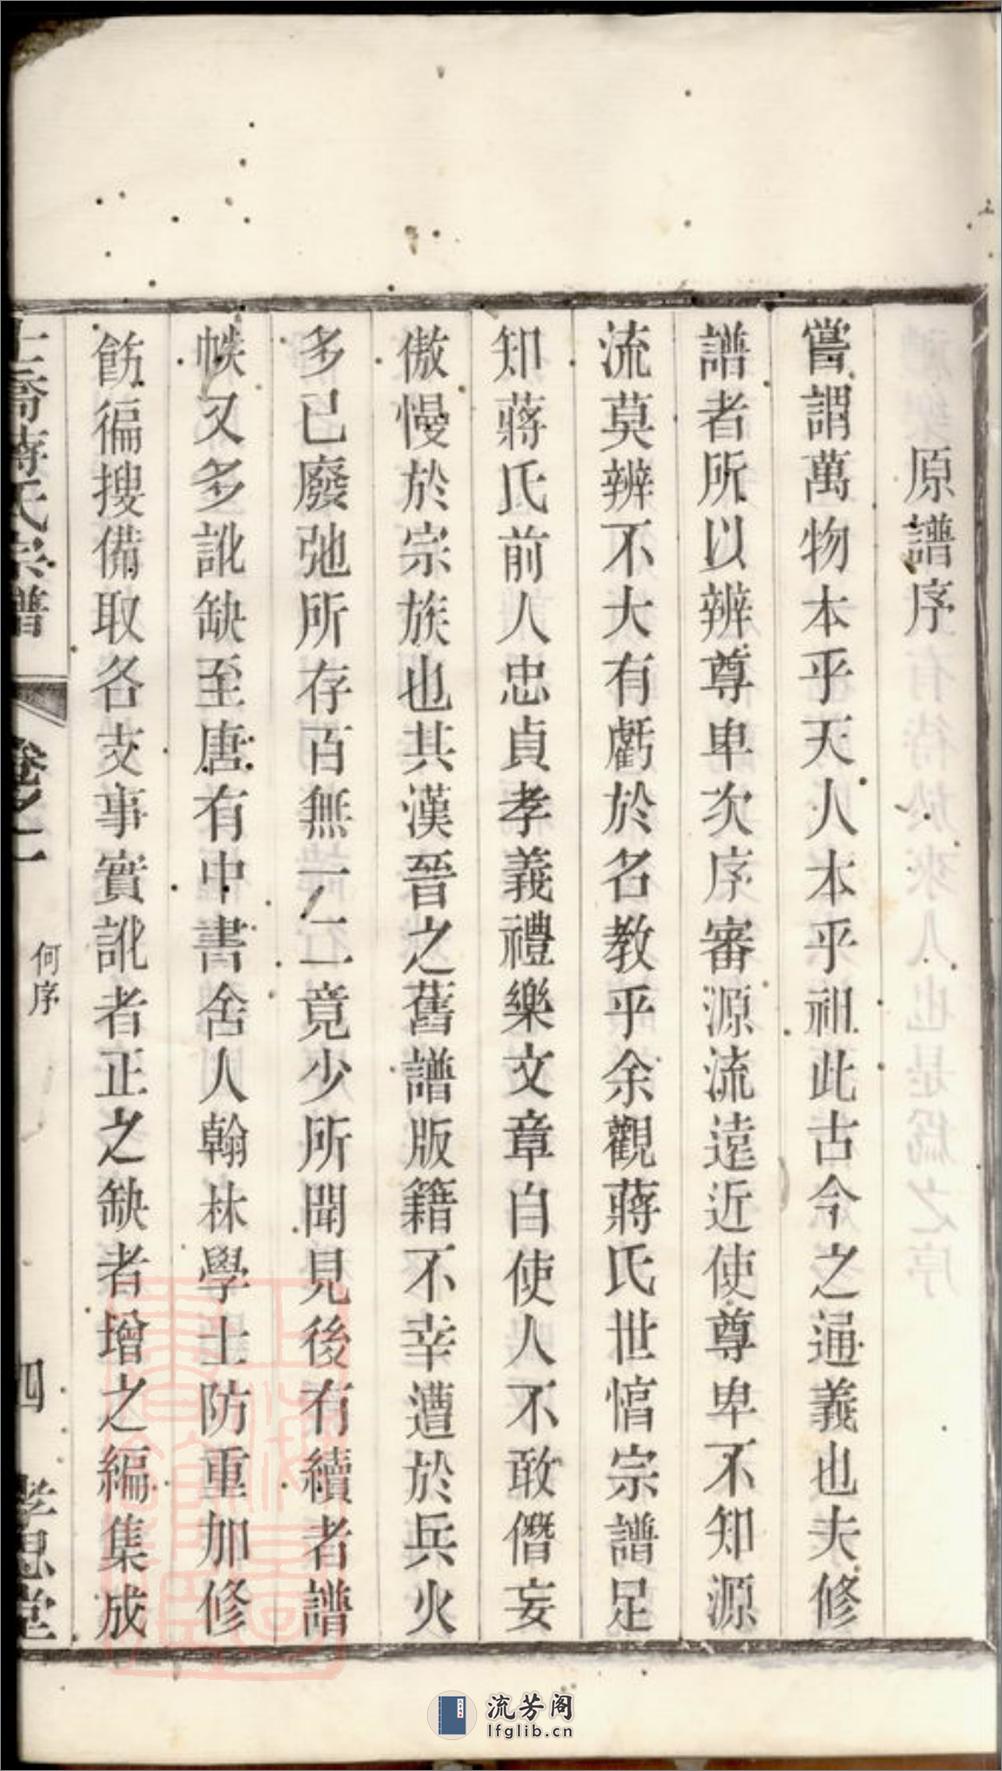 原譜序
嘗謂萬物本乎天人本乎祖此古今之通義也夫修
譜者所以辨尊卑次序審源流遠近使尊卑不知源
流莫辨不大有虧於名教乎余觀蔣氏世慆宗譜足
知蔣氏前人忠貞孝義禮樂文章自使人不敢僭妄
傲慢於宗族也其漢晉之舊譜版籍不幸遭於兵火
多已廢弛所存百無一二竟少所聞見後有續者譜
帙又多訛缺至唐有中書舍人翰林學士防重加修
飭徧搜備取各支事實訛者正之缺者增之編集成
蔣氏宗譜
卷之一
何序
四
孝思堂
流芳阁
lfglib.cn